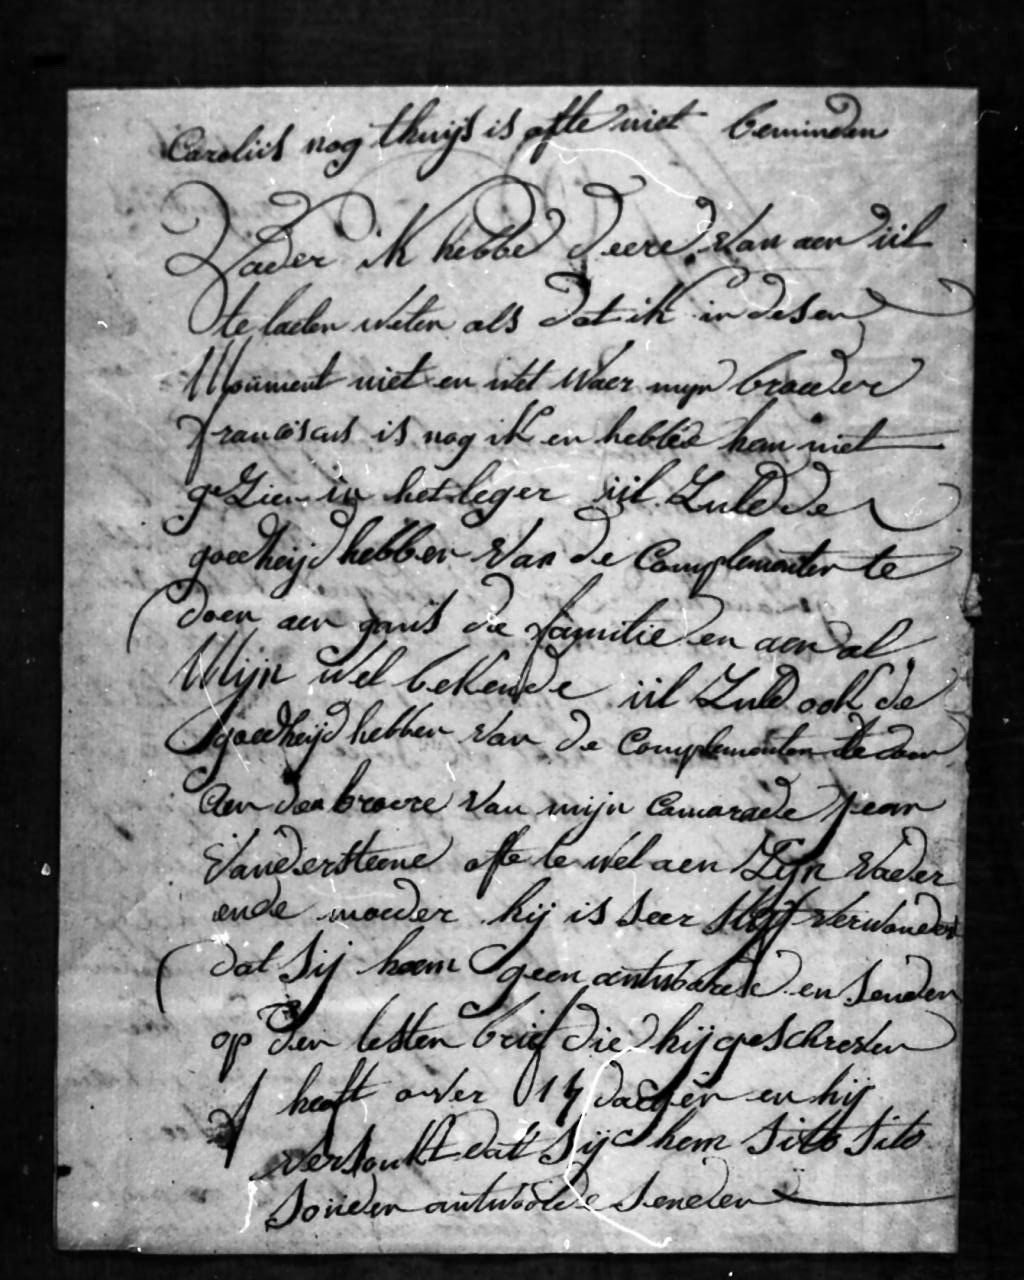 Caroliis nog thuijs is ofte niet beminden
Vader ik hebbe d'eere van aen ul
te laeten weten als dat ik in desen
Moument niet en wet waer mijn broeder
franciscus is nog ik en hebbe hem niet
geZien in het leger ul Zuld de
goedheijd hebben van de Complementen te
doen aen gans de familie en aen al
Mijn wel bekende ul Zuld ook de
goedheijd hebben van de Complementen te doen
Aen den broere van mijn Camarade Jean
Vandersteene ofte wel aen Zijn Vader
ende moeder hij is seer verwondert
dat sij hem geen antwoorde en senden
op den lesten brief die hij geschreven
heeft over 14 dachen en hij
versoukt dat sij hem sito sito
souden antwoorde senden